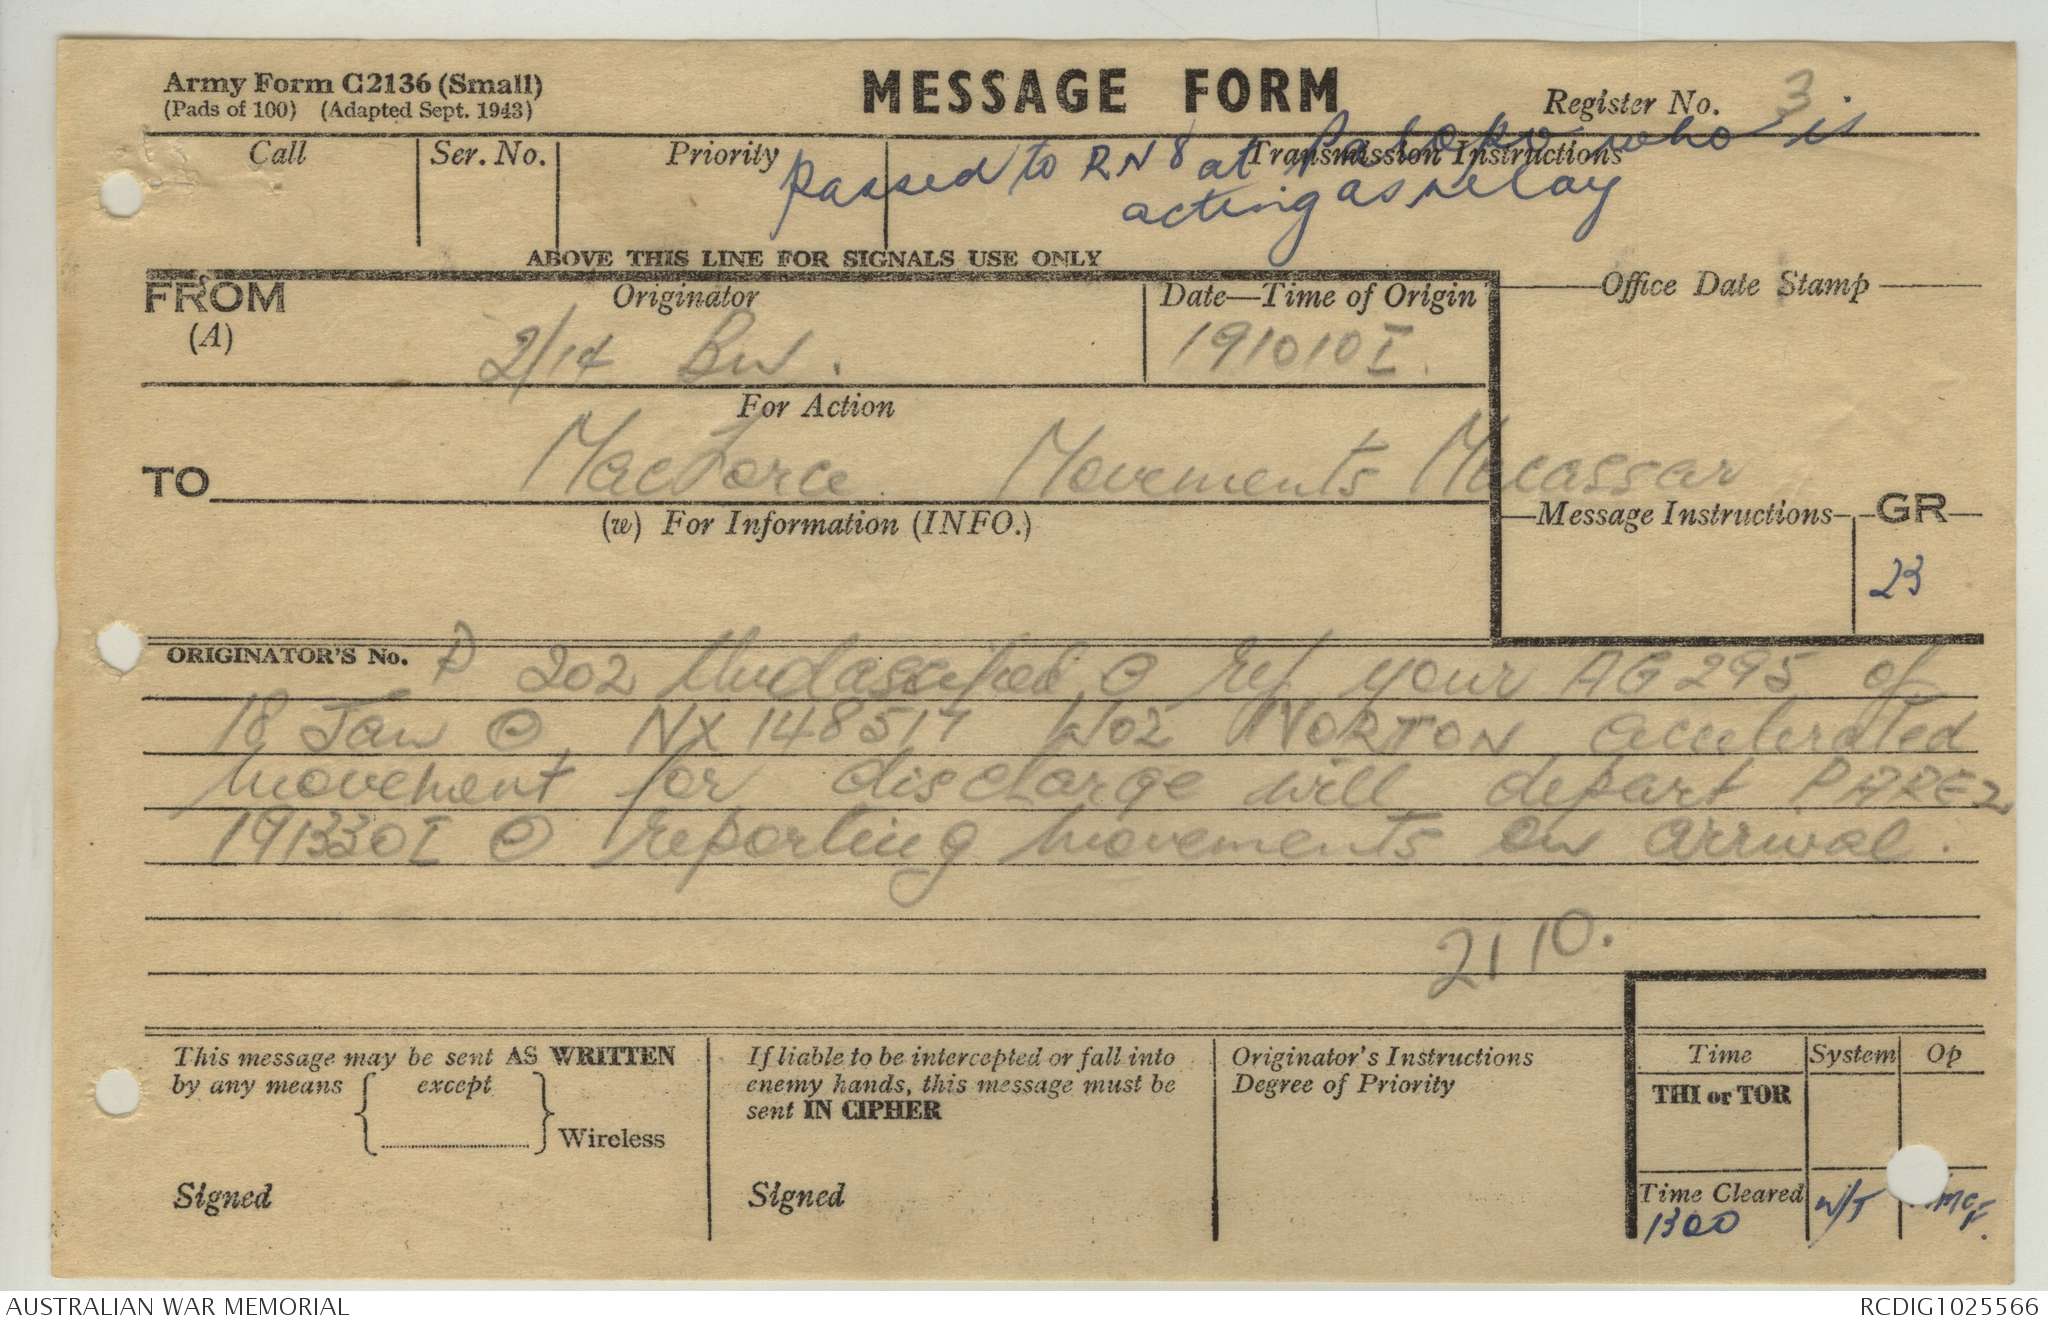 Army Form C2136 (Small)
(Pads of 100) (Adapted Sept. 1943)
MESSAGE FORM
Register No. 3
Call
Ser. No.
Priority
Transmission Instructions
passed to RN8 at Palopo who is
acting as relay
ABOVE THIS LINE FOR SIGNALS USE ONLY
FROM
(A)
Originator
2/14 Bn.
Date—Time of Origin
191010I.
Office Date Stamp
For Action
TO
MacForce Movements Macassar
(w) For Information (INFO.)
Message Instructions
GR
23
ORIGINATOR'S No. P 202 Unclassified @ ref your AG 295 of
18 Jan @ NX 148517 WO2 NORTON accelerated
movement for discharge will depart PARE2
191330I @ reporting movements on arrival.
2110.
This message may be sent AS WRITTEN
by any means except
Wireless
Signed
If liable to be intercepted or fall into
enemy hands, this message must be
sent IN CIPHER
Signed
Originator's Instructions
Degree of Priority
Time
System
Op
THI or TOR
Time Cleared
1300
W/T
AUSTRALIAN WAR MEMORIAL
RCDIG1025566